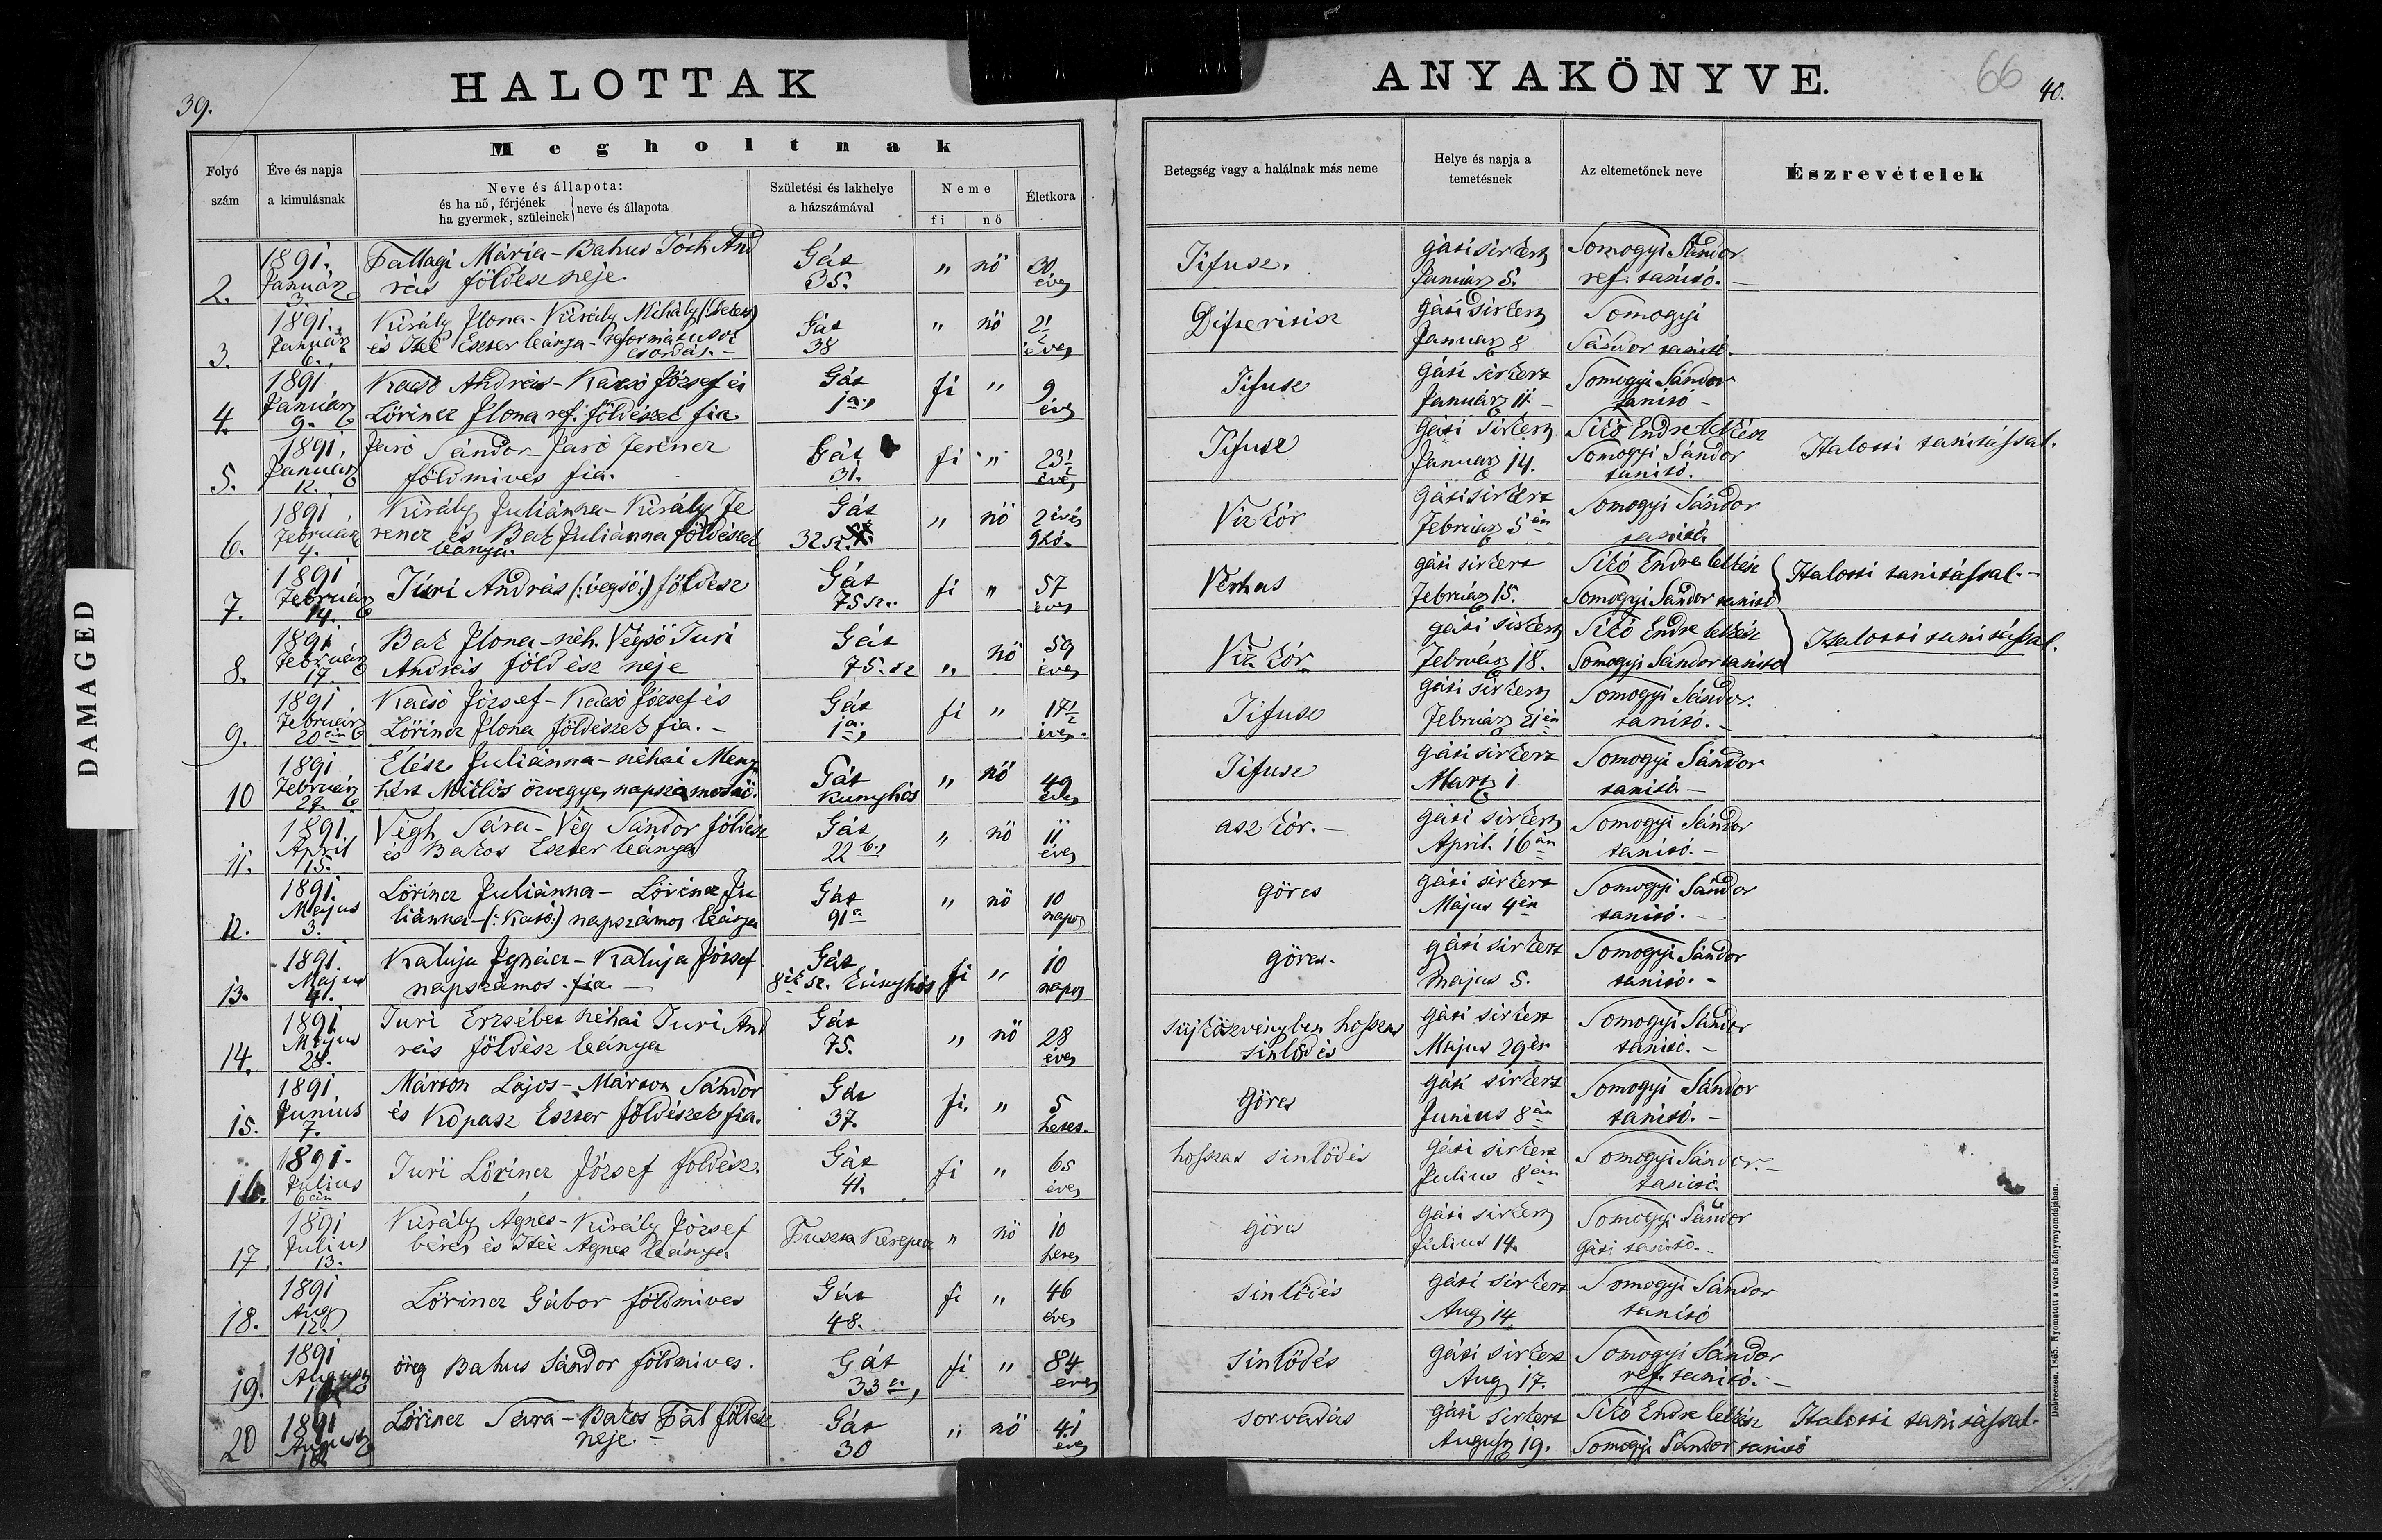 HALOTTAK
ANYAKÖNYVE.
39.
66
40.
DAMAGED
Megholtnak
Folyó szám
Éve és napja a kimulásnak
Neve és állapota:
és ha nő, férjének
ha gyermek, szüleinek
neve és állapota
Születési és lakhelye a házszámával
Neme
fi nő
Életkora
Betegség vagy a halálnak más neme
Helye és napja a temetésnek
Az eltemetőnek neve
Észrevételek
2. 1891. Január 3. Pallagi Mária - Bakus Tóth And
rás földész neje. Gát 35. „ nő 30 éves Tifusz. gáti sirkert Január 5. Somogyi Sándor ref. tanitó. -
3. 1891. Január 6. Király Ilona - Király Mihály
és Eszter leánya - református csordás. - Gát 38 „ nő 2 1/2 éves Difteritisz gáti sirkert Január 8 Somogyi Sándor tanitó.
4. 1891 Január 9. Kacsó András - Kacsó József és
Lőrincz Ilona ref. földészek fia Gát 1 a., fi „ 9 éves Tifusz gáti sirkert Január 11. - Somogyi Sándor tanitó -
5. 1891. Január 12. Sándor - Ferencz
földmives fia. Gát 31. fi „ 23 1/2 éves Tifusz gáti sirkert Január 14. Sitó Endre lelkész Somogyi Sándor tanitó. Halotti tanitással.
6. 1891 Február 4. Király Juliánna - Király Fe
rencz és Bak Juliánna földészek leánya. Gát 32 sz. „ nő 2 éves 9 hó. Viz kór gáti sirkert Február 5 én Somogyi Sándor tanitó.
7. 1891 Február 14. Turi András (: végső :) földész Gát 75 sz. fi „ 57 éves Vérhas gáti sirkert Február 15. Sitó Endre lelkész Somogyi Sándor tanitó Halotti tanitással. -
8. 1891 Február 17. Bak Ilona - néh. Végső Turi
András földész neje Gát 75. sz „ nő 59 éves Viz kór gáti sirkert Február 18. Sitó Endre lelkész Somogyi Sándor tanitó Halotti tanitással.
9. 1891 Február 20 án Kacsó József - Kacsó József és
Lőrincz Ilona földészek fia. - Gát 1 a., fi „ 17 1/2 éves. Tifusz gáti sirkert Február 21 én Somogyi Sándor. tanitó. -
10 1891 Február 27. Juliánna - néhai Meny
hért Miklós özvegye, napszámosnő. Gát Kunyhós „ nő 49 éves Tifusz gáti sirkert Martz 1 Somogyi Sándor tanitó -
11. 1891. April 15. Végh Sára - Vég Sándor földész
és Bakos Eszter leánya Gát 22 b., „ nő 11 éves asz kór. - gáti sirkert April. 16 án Somogyi Sándor tanitó. -
12. 1891. Május 3. Lőrincz Juliánna - Lőrincz Ju
liánna - (: Kató :) napszámos leánya Gát 91 a „ nő 10 napos görcs gáti sirkert Május 4 én Somogyi Sándor tanitó. -
13. 1891. Május 4. Kaluja Ignácz - Kaluja József
napszámos fia. - Gát 8 ik sz. kúnyhós fi „ 10 napos görcs. gáti sirkert Május 5. Somogyi Sándor tanitó. -
14. 1891 Május 28. Turi Erzsébet néhai Turi And
rás földész leánya Gát 75. „ nő 28 éves hosszas sinlődés gáti sirkert Május 29 én Somogyi Sándor tanitó. -
15. 1891 Junius 7. Márton Lajos - Márton Sándor
és Kopasz Eszter földészek fia. Gát 37. fi. „ 5 hetes. Görcs gáti sirkert Junius 8 án Somogyi Sándor tanitó. -
16. 1891. Julius 6 án Turi Lőrincz József földész. Gát 41. fi „ 65 éves hosszas sinlődés gáti sirkert Julius 8 án Somogyi Sándor. - tanitó.
17. 1891 Julius 13. Király Ágnes - Király József
béres és Ágnes leánya Puszta Kerepecz „ nő 10 hetes görcs gáti sirkert Julius 14. Somogyi Sándor gáti tanitó. -
18. 1891 Aug 12. Lőrincz Gábor földmives Gát 48. fi „ 46 éves sinlődés gáti sirkert Aug 14. Somogyi Sándor tanitó
19. 1891 August öreg Bakus Sándor földmives. Gát 33 a., fi „ 84 éves sinlődés gáti sirkert Aug 17. Somogyi Sándor ref. tanitó. -
20 1891 August 18 Lőrincz Sára - Bakos Pál földész
neje. - Gát 30 „ nő 41 éves sorvadás gáti sirkert August 19. Sitó Endre lelkész Somogyi Sándor tanitó Halotti tanitással.
Debreczen. 1865. Nyomatott a város könyvnyomdájában.